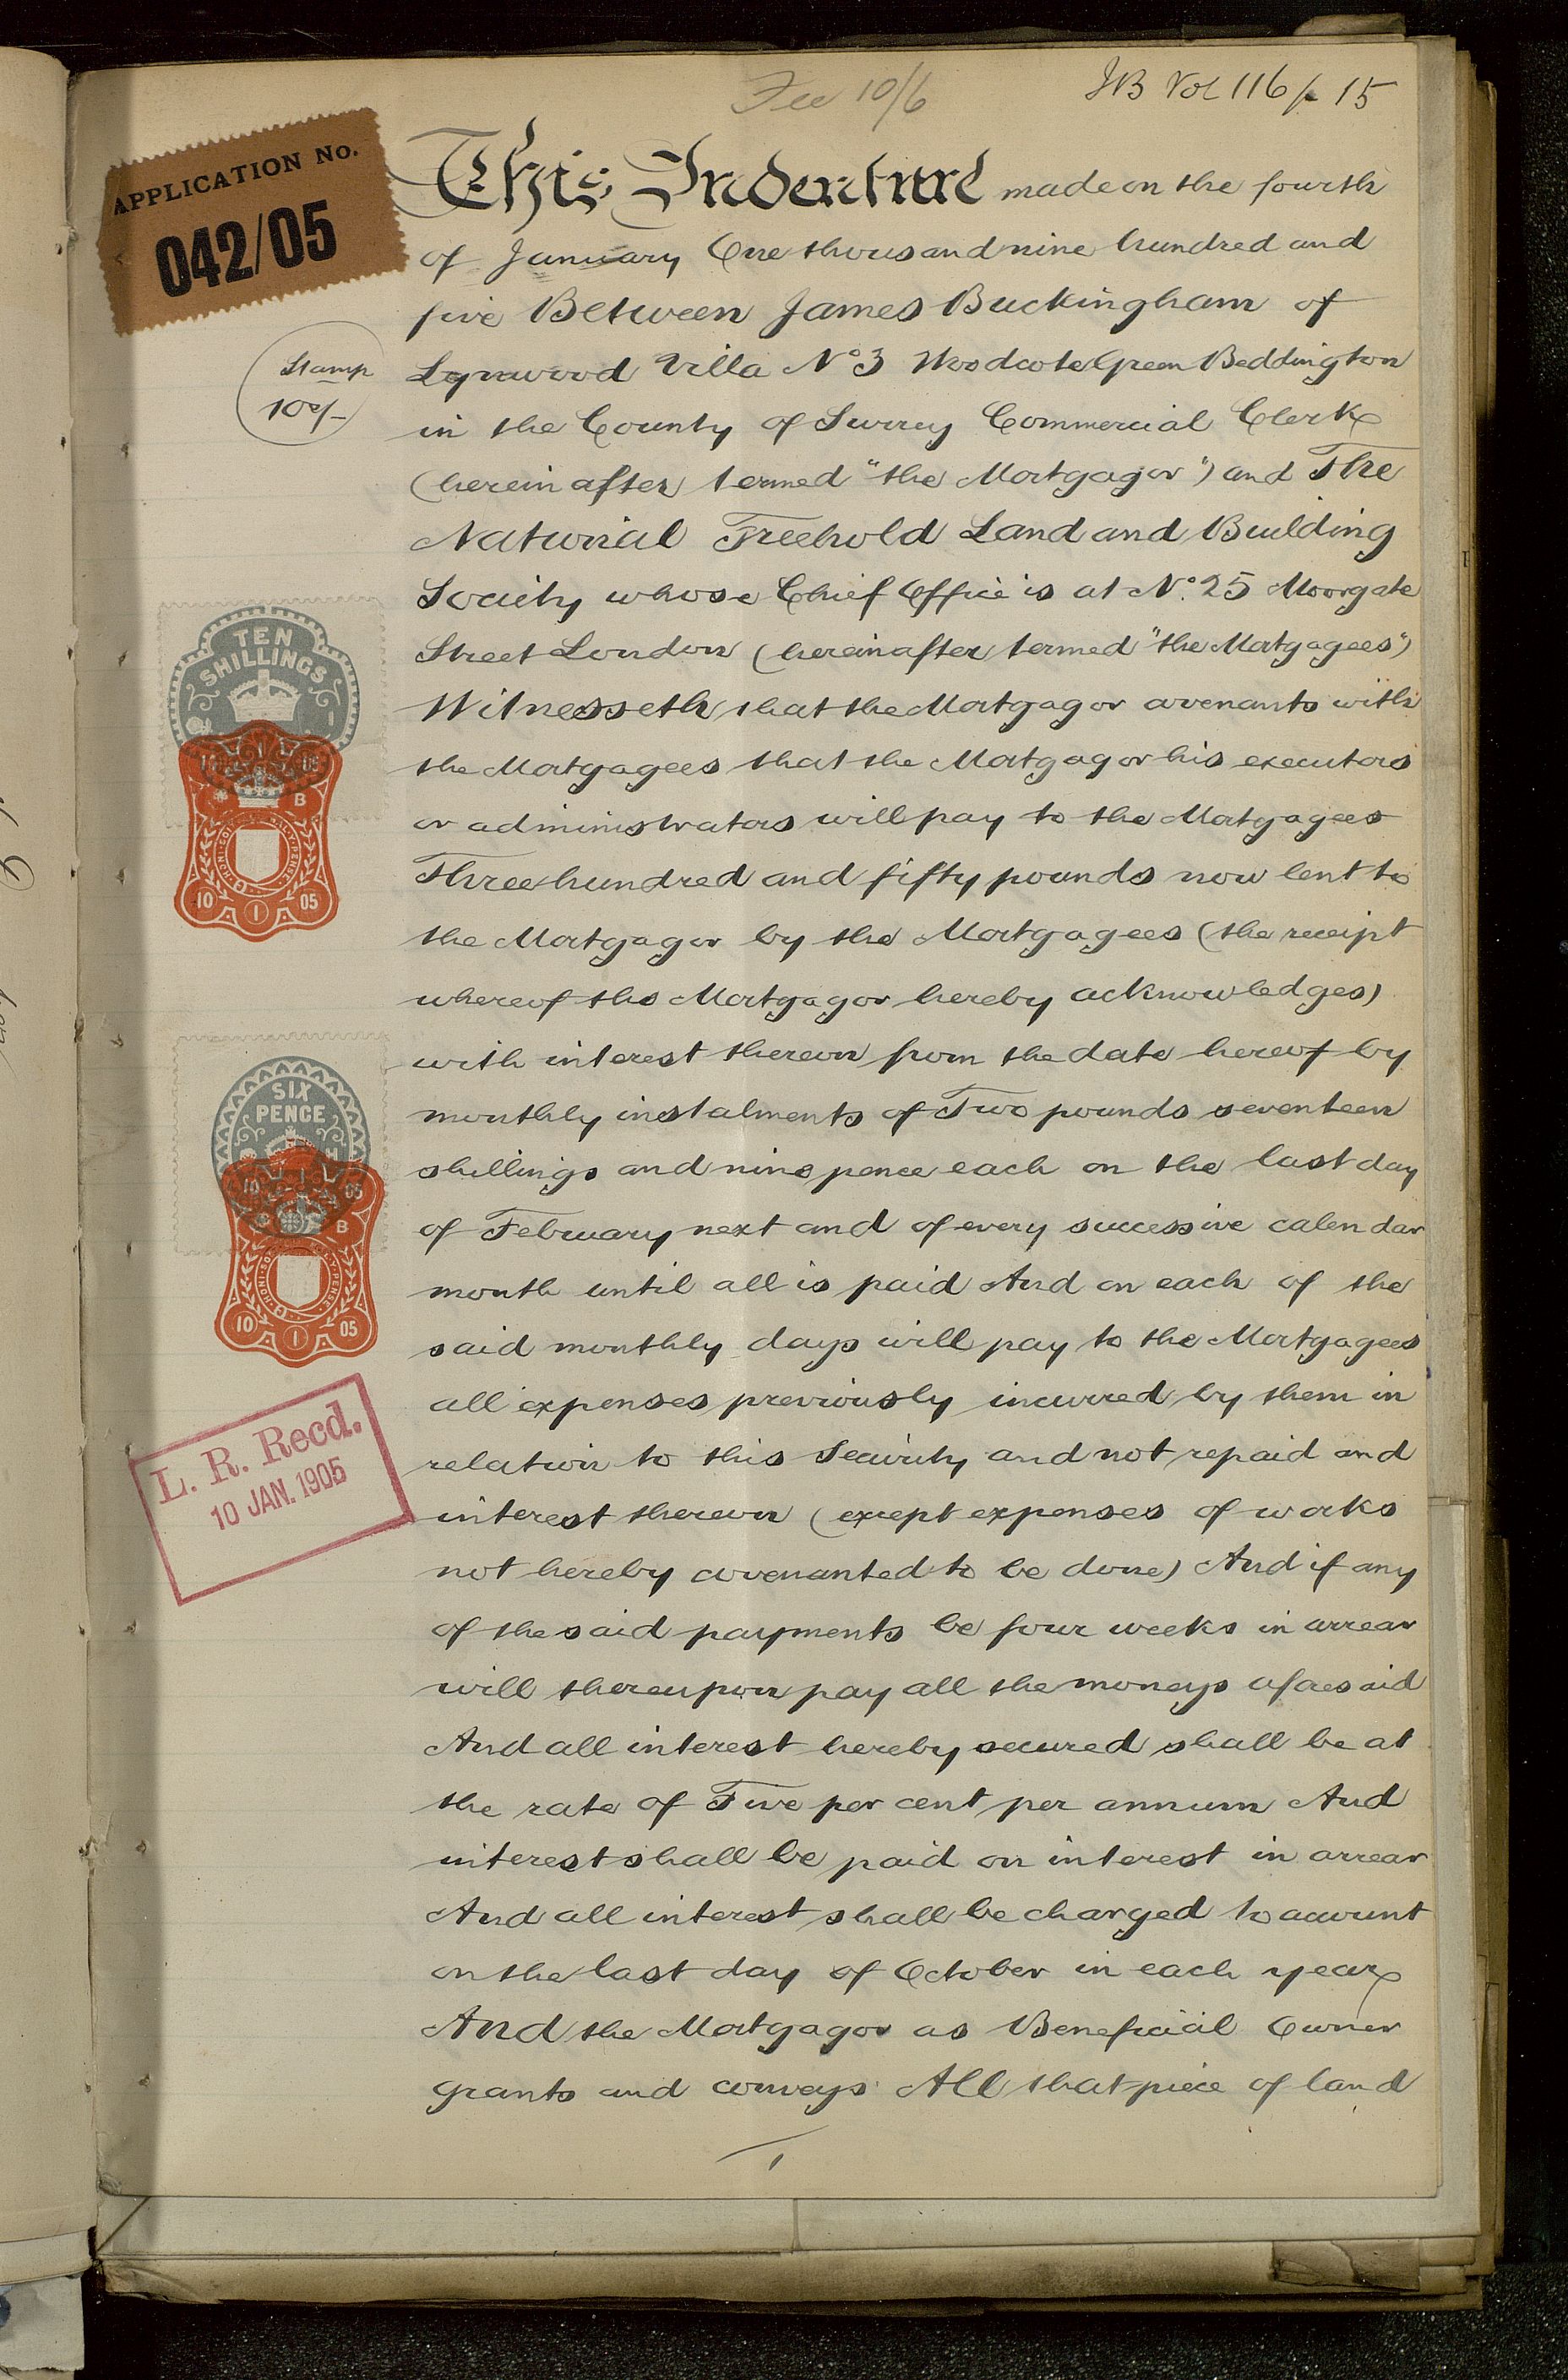 Fee 10/6
JB Vol 116 p 15
APPLICATION No.
042/05
This Indenture made on the fourth
of January One thousand nine hundred and
five Between James Buckingham of
Lynwood Villa No 3 Woodcote Green Beddington
in the County of Surrey Commercial Clerk
(hereinafter termed "the Mortgagor") and The
National Freehold Land and Building
Society whose Chief Office is at No. 25 Moorgate
Street London (hereinafter termed "the Mortgagees")
Witnesseth that the Mortgagor covenants with
the Mortgagees that the Mortgagor his executors
or administrators will pay to the Mortgagees
Three hundred and fifty pounds now lent to
the Mortgagor by the Mortgagees (the receipt
whereof the Mortgagor hereby acknowledges)
with interest thereon from the date hereof by
monthly instalments of Two pounds seventeen
shillings and nine pence each on the last day
of February next and of every successive calendar
month until all is paid And on each of the
said monthly days will pay to the Mortgagees
all expenses previously incurred by them in
relation to this Security and not repaid and
interest thereon (except expenses of works
not hereby covenanted to be done) And if any
of the said payments be four weeks in arrear
will thereupon pay all the moneys aforesaid
And all interest hereby secured shall be at
the rate of Five per cent per annum And
interest shall be paid on interest in arrear
And all interest shall be charged to account
on the last day of October in each year
And the Mortgagor as Beneficial Owner
grants and conveys All that piece of land
1
Stamp
10/-
TEN
SHILLINGS
B
10 1 05
SIX
PENCE
10 05
B
10 1 05
L. R. Recd.
10 JAN. 1905